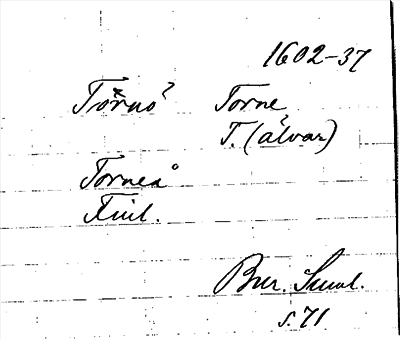 1602-37
Törnö? Torne
T. (älvar)
Torneå
Finl.
Bur. Suml.
s. 71